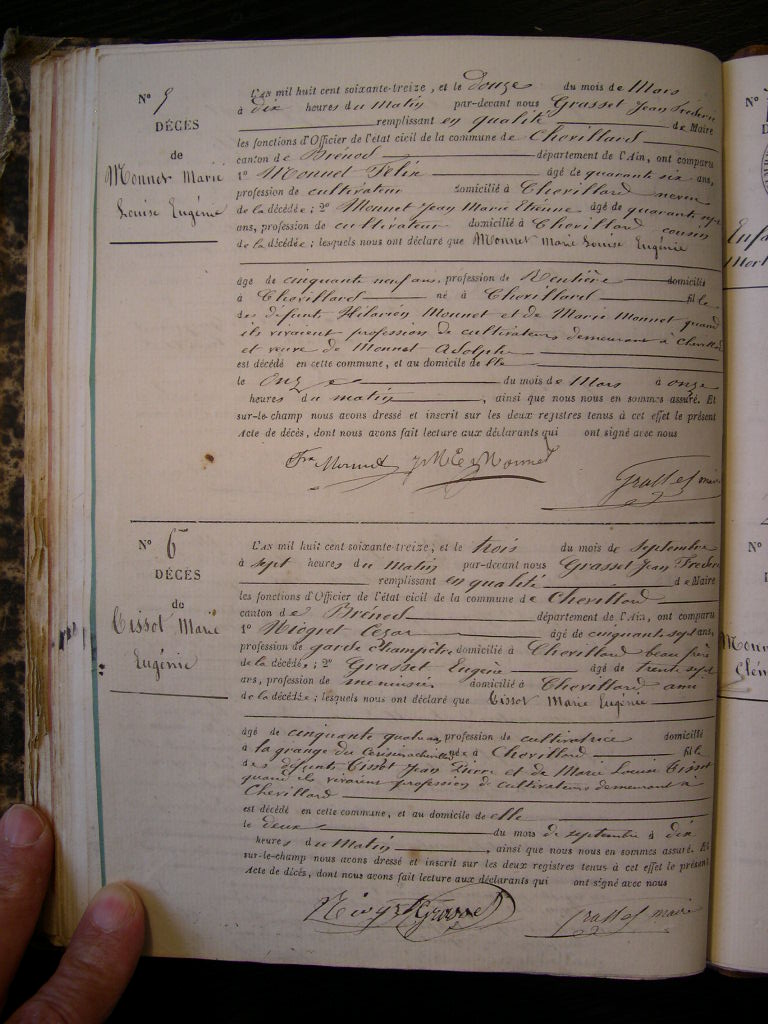 N° 5
DÉCÈS
de
Monnet Marie
Louise Eugénie
L'AN mil huit cent soixante-treize, et le Douze du mois de Mars
à Dix heures du Matin par-devant nous Grasset Jean Frédéric
remplissant en qualité de Maire
les fonctions d'Officier de l'état civil de la commune de Chevillard
canton de Brénod département de l'Ain, ont comparu
1° Monnet Félix âgé de quarante six ans,
profession de cultivateur domicilié à Chevillard neveu
de la décédée; 2° Monnet Jean Marie Etienne âgé de quarante sept
ans, profession de cultivateur domicilié à Chevillard cousin
de la décédée; lesquels nous ont déclaré que Monnet Marie Louise Eugénie
âgé de cinquante neuf ans, profession de Rentière domicilié
à Chevillard né à Chevillard fille
des défunts Hilarion Monnet et de Marie Monnet quand
ils vivaient profession de cultivateurs demeurant à Chevillard
et veuve de Monnet Adolphe
est décédé en cette commune, et au domicile de elle
le Onze du mois de Mars à onze
heures du matin, ainsi que nous nous en sommes assuré. Et
sur-le-champ nous avons dressé et inscrit sur les deux registres tenus à cet effet le présent
Acte de décès, dont nous avons fait lecture aux déclarants qui ont signé avec nous
Monnet J M E Monnet
Grasset maire
N° 6
DÉCÈS
de
Tissot Marie
Eugénie
L'AN mil huit cent soixante-treize, et le trois du mois de Septembre
à sept heures du Matin par-devant nous Grasset Jean Frédéric
remplissant en qualité de Maire
les fonctions d'Officier de l'état civil de la commune de Chevillard
canton de Brénod département de l'Ain, ont comparu
1° Niogret César âgé de cinquante sept ans,
profession de garde champêtre domicilié à Chevillard beau frère
de la décédée; 2° Grasset Eugène âgé de trente sept
ans, profession de menuisier domicilié à Chevillard ami
de la décédée; lesquels nous ont déclaré que Tissot Marie Eugénie
âgé de cinquante quatre ans, profession de cultivatrice domicilié
à la grange du Cerisier chevillard née à Chevillard fille
des défunts Tissot Jean Pierre et de Marie Louise Tissot
quand ils vivaient profession de cultivateurs demeurant à
Chevillard
est décédé en cette commune, et au domicile de elle
le deux du mois de septembre à dix
heures du Matin, ainsi que nous nous en sommes assuré. Et
sur-le-champ nous avons dressé et inscrit sur les deux registres tenus à cet effet le présent
Acte de décès, dont nous avons fait lecture aux déclarants qui ont signé avec nous
Niogret Grasset Grasset maire
N°
Enfa
Mort
N°
Monn
Clén